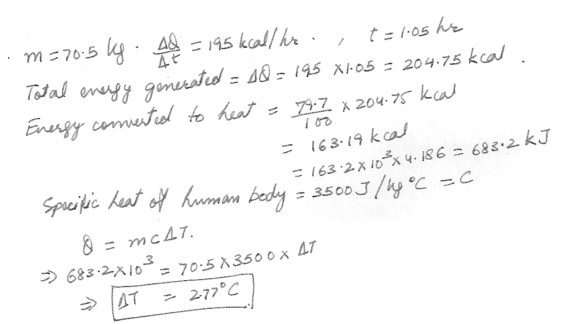 . m = 70.5 kg . ΔQ/Δt = 195 kcal/hr . , t = 1.05 hr
Total energy generated = ΔQ = 195 x1.05 = 204.75 kcal .
Energy converted to heat = 79.7/100 x 204.75 kcal
= 163.19 kcal
= 163.2 x 10³ x 4.186 = 683.2 kJ
Specific heat of human body = 3500 J/kg °C = C
Q = mcΔT.
⇒ 683.2x10³ = 70.5 x3500x ΔT
⇒ ΔT = 2.77°C